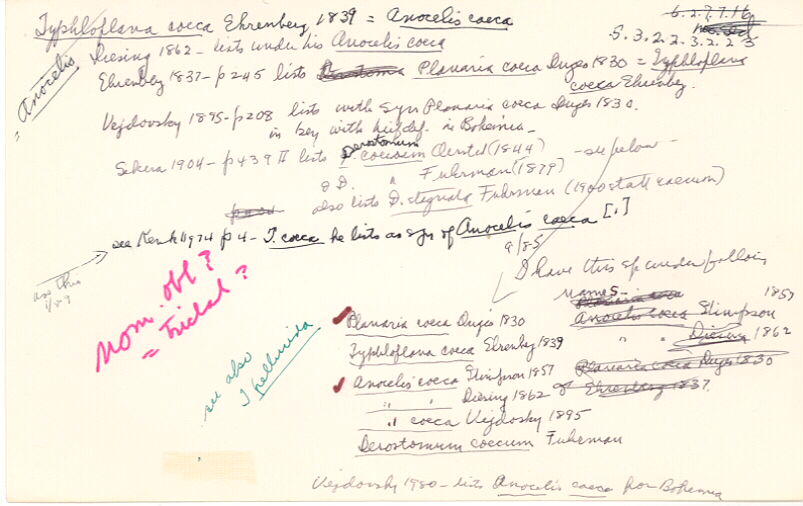 Typhloplana coeca Ehrenberg 1839 = Anocelis coeca
5. 3. 2. 2. 3. 2. 2. 5
Diesing 1862 - lists under his Anocelis coeca
Anocelis
Ehrenberg 1837 - p 245 lists Planaria coeca Duges 1830 = Typhloplana
coeca Ehrenberg.
Vejdovsky 1895 - p 208 lists with syn Planaria coeca Duges 1830.
in key with in Bohemia -
Derostomum
Sekera 1904 - p 439 II lists coecum Oersted (1844) - see below -
& D. " Fuhrman (1879)
also lists D. Fuhrman (1900 statt coecum)
see Kenk 1974 p 4 - T. coeca he lists as syn of Anocelis coeca [1]
9/85
see this
1/89
I have this sp under following
names -
Nom. obl ?
= Triclad ?
see also
T
Planaria coeca Duges 1830
Typhloplana coeca Ehrenberg 1839
Anocelis coeca Stimpson 1857
" " Diesing 1862
" coeca Vejdovsky 1895
Derostomum coecum Fuhrman
1857
Anocelis coeca Stimpson
" " Diesing 1862
Planaria coeca Duges 1830
of Ehrenberg 1837.
Vejdovsky 1980 - lists Anocelis coeca for Bohemia